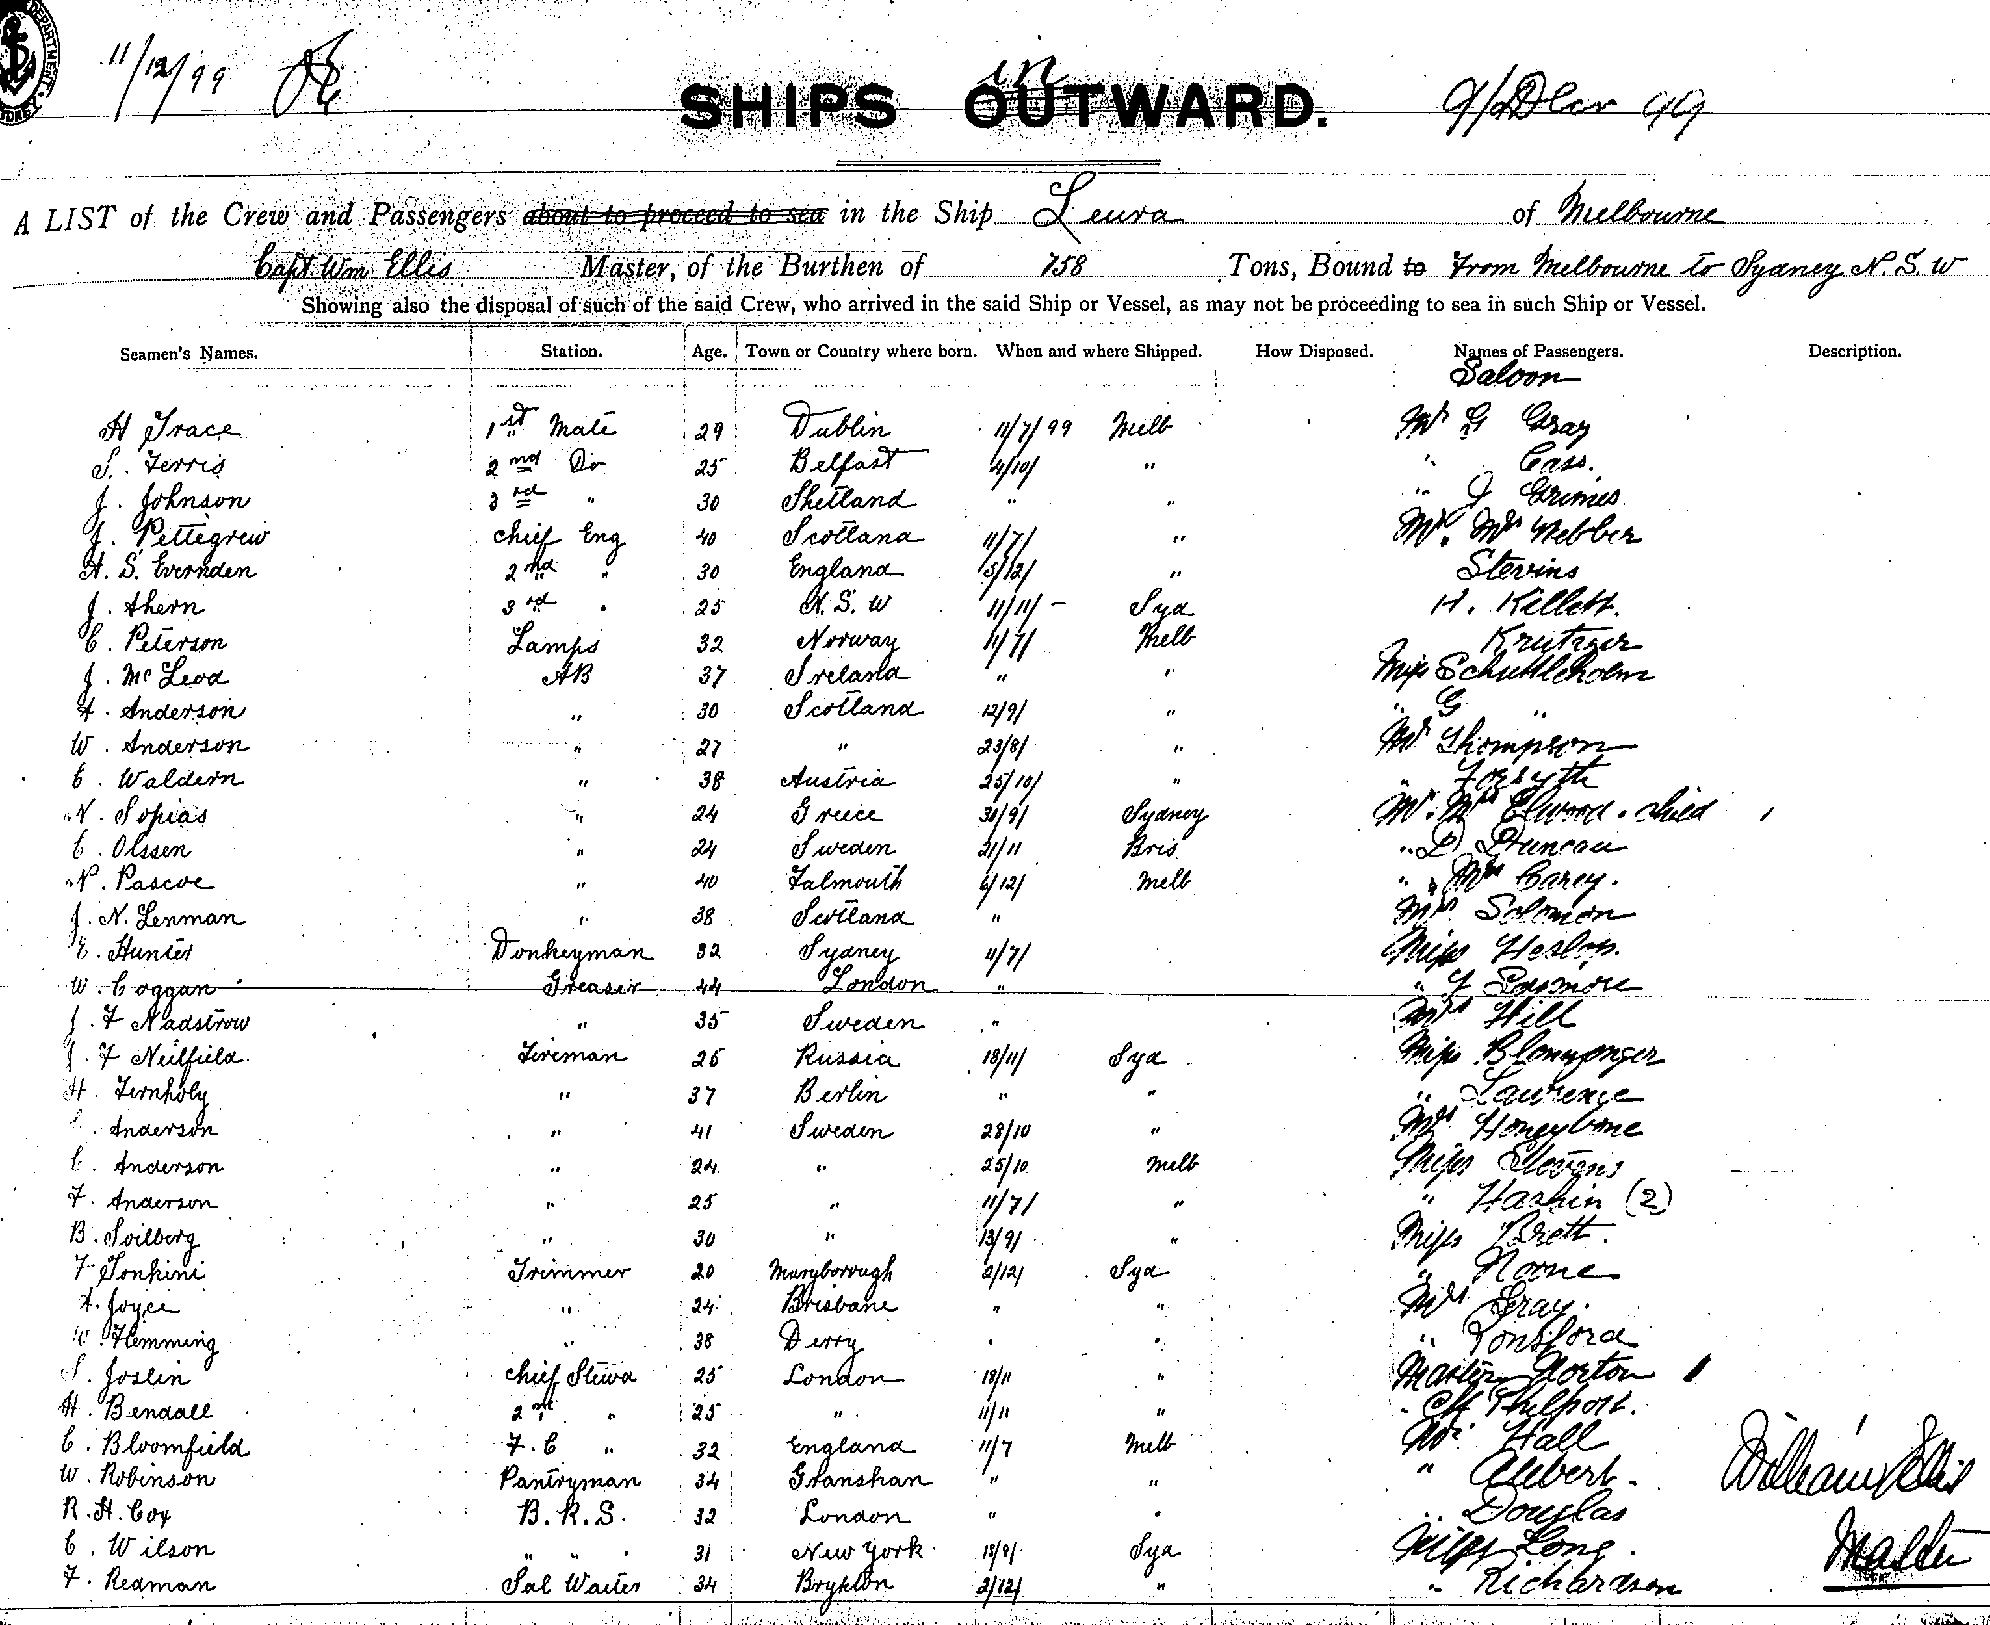 11/12/99
SHIPS OUTWARD. in 9/Decr 99
A LIST of the Crew and Passengers about to proceed to sea in the Ship Leura of Melbourne
Capt. Wm Ellis Master, of the Burthen of 758 Tons, Bound to From Melbourne to Sydney N. S. W
Showing also the disposal of such of the said Crew, who arrived in the said Ship or Vessel, as may not be proceeding to sea in such Ship or Vessel.
Seamen's Names. Station. Age. Town or Country where born. When and where Shipped. How Disposed. Names of Passengers. Description.
Saloon
H Trace 1st Mate 29 Dublin 11/7/99 Melb Mr G Gray
S. Ferris 2nd Do 25 Belfast 4/10/ " " Cass.
J. Johnson 3rd " 30 Shetland " " " J Grimes
J. Pettigrew chief Eng 40 Scotland 11/7/ " Mr. Mrs Webber
H. S. Evernden 2nd " 30 England 5/12/ " Stevins
J. Ahern 3rd " 25 N. S. W 11/11/ - Syd H. Killett.
C. Peterson Lamps 32 Norway 11/7/ Melb Krutzer
J. McLeod AB 37 Ireland " " Miss Schuttleholm
A. Anderson " 30 Scotland 12/9/ " " G "
W. Anderson " 27 " 23/8/ " Mr Thompson
C. Waldern " 38 Austria 25/10/ " " Forsyth
N. Sopias " 24 Greece 30/9/ Sydney Mr. Mrs Elwood. child
C. Olssen " 24 Sweden 21/11 Bris " D Duncan
N. Pascoe " 40 Falmouth 6/12/ Melb " " Mrs Carey.
J. N. Lenman " 38 Scotland " Mrs Solomon
E. Hunter Donkeyman 32 Sydney 11/7/ Miss Heslop.
W. Coggan Greaser 44 London " "
J. F Nadstrow " 35 Sweden " Mrs Hill
J. F Neilfield Fireman 26 Russia 18/11/ Syd Miss
H. Fernholy " 37 Berlin " " " Lawrence
Anderson " 41 Sweden 28/10 " Mrs Honeybone
C. Anderson " 24 " 25/10 Melb Miss Stevens
F. Anderson " 25 " 11/7/ " " Harkin (2)
B. Soilberg " 30 " 13/9/ " Miss Brett.
F Tonkini Trimmer 20 Maryborough 2/12/ Syd " Noone
A. Joyce " 24 Brisbane " " Mrs Gray.
W. Flemming " 38 Derry " " " Ronsford
S. Joslin chief Stewd 25 London 18/11 " Master Norton
H. Bendall 2nd " 25 " 11/11 " Philpott.
C. Bloomfield F. C " 32 England 11/7 Melb Mr. Hall
W. Robinson Pantryman 34 Granshan " " "
R. H. Cox B. R. S. 32 London " " " Douglas
C. Wilson " " " 31 New York 18/9/ Syd Miss Long.
F. Redman Sal Waiter 34 Bryhton 2/12/ " " Richardson
William Ellis
Master